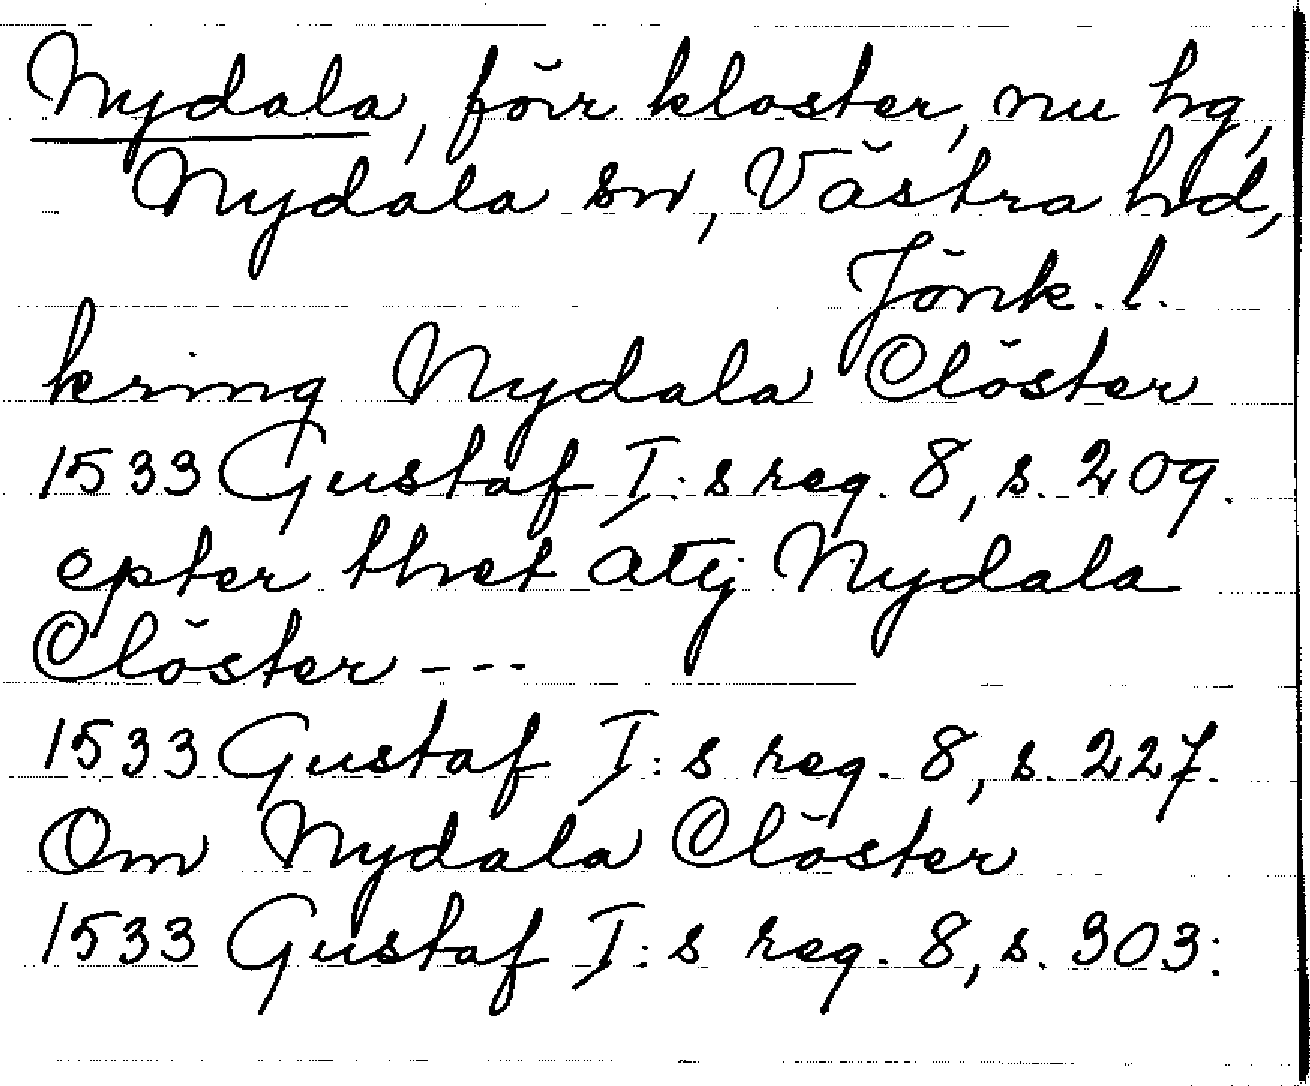 Nydala, förr kloster, nu hg,
Nydala sn, Västra hd,
Jönk. l.
kring Nydala Clöster
1533 Gustaf I:s reg. 8, s. 209.
epter thet atj Nydala
Clöster ---
1533 Gustaf I:s reg. 8, s. 227.
Om Nydala Clöster
1533 Gustaf I:s reg. 8, s. 303: